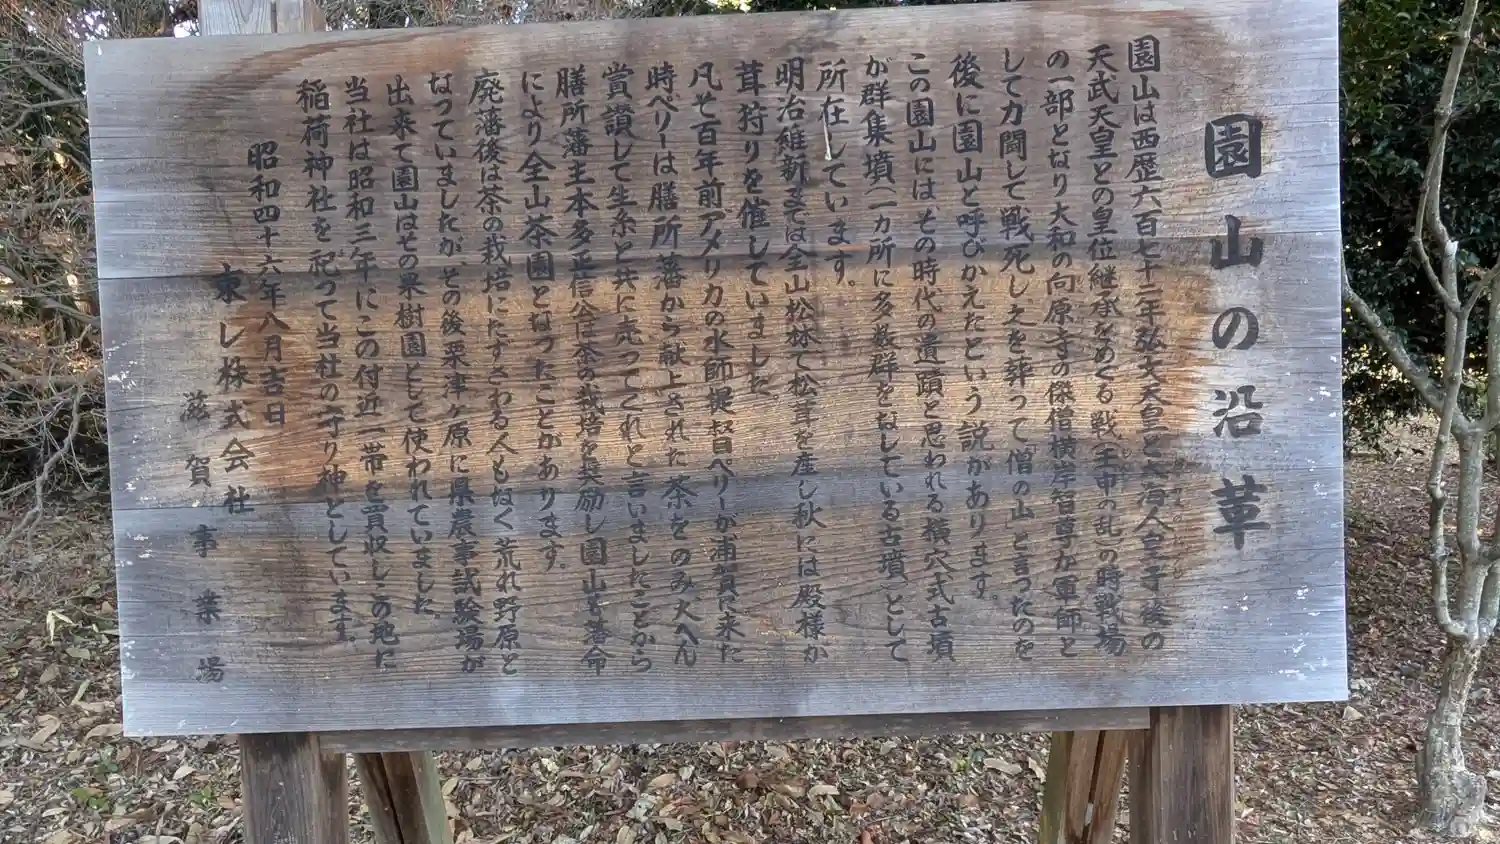 園山の沿革
園山は西歴六百七十二年弘文天皇と大海人皇子後の
天武天皇との皇位継承をめぐる戦壬申の乱の時戦場
の一部となり大和の向原寺の傑僧横岸智尊が軍師と
して力闘して戦死し、之を葬って「僧の山」と言ったのを
後に園山と呼びかえたという説があります。
この園山にはその時代の遺蹟と思われる横穴式古墳
が群集墳(一ヵ所に多数群をなしている古墳)として
所在しています。
明治維新までは全山松林で松茸を産し秋には殿様が
茸狩りを催していました。
凡そ百年前アメリカの水師提督ペリーが浦賀に来た
時ペリーは膳所藩から献上された茶をのみ大へん
賞讃して生糸と共に売ってくれと言いましたことから
膳所藩主本多正信公は茶の栽培を奨励し園山も藩命
により全山茶園となったことがあります。
廃藩後は茶の栽培にたずさわる人もなく荒れ野原と
なっていましたが、その後粟津ヶ原に県農事試験場が
出来て園山はその果樹園として使われていました。
当社は昭和三年にこの付近一帯を買収しこの地に
稲荷神社を祀って当社の守り神としています。
昭和四十六年八月吉日
東レ株式会社
滋賀事業場